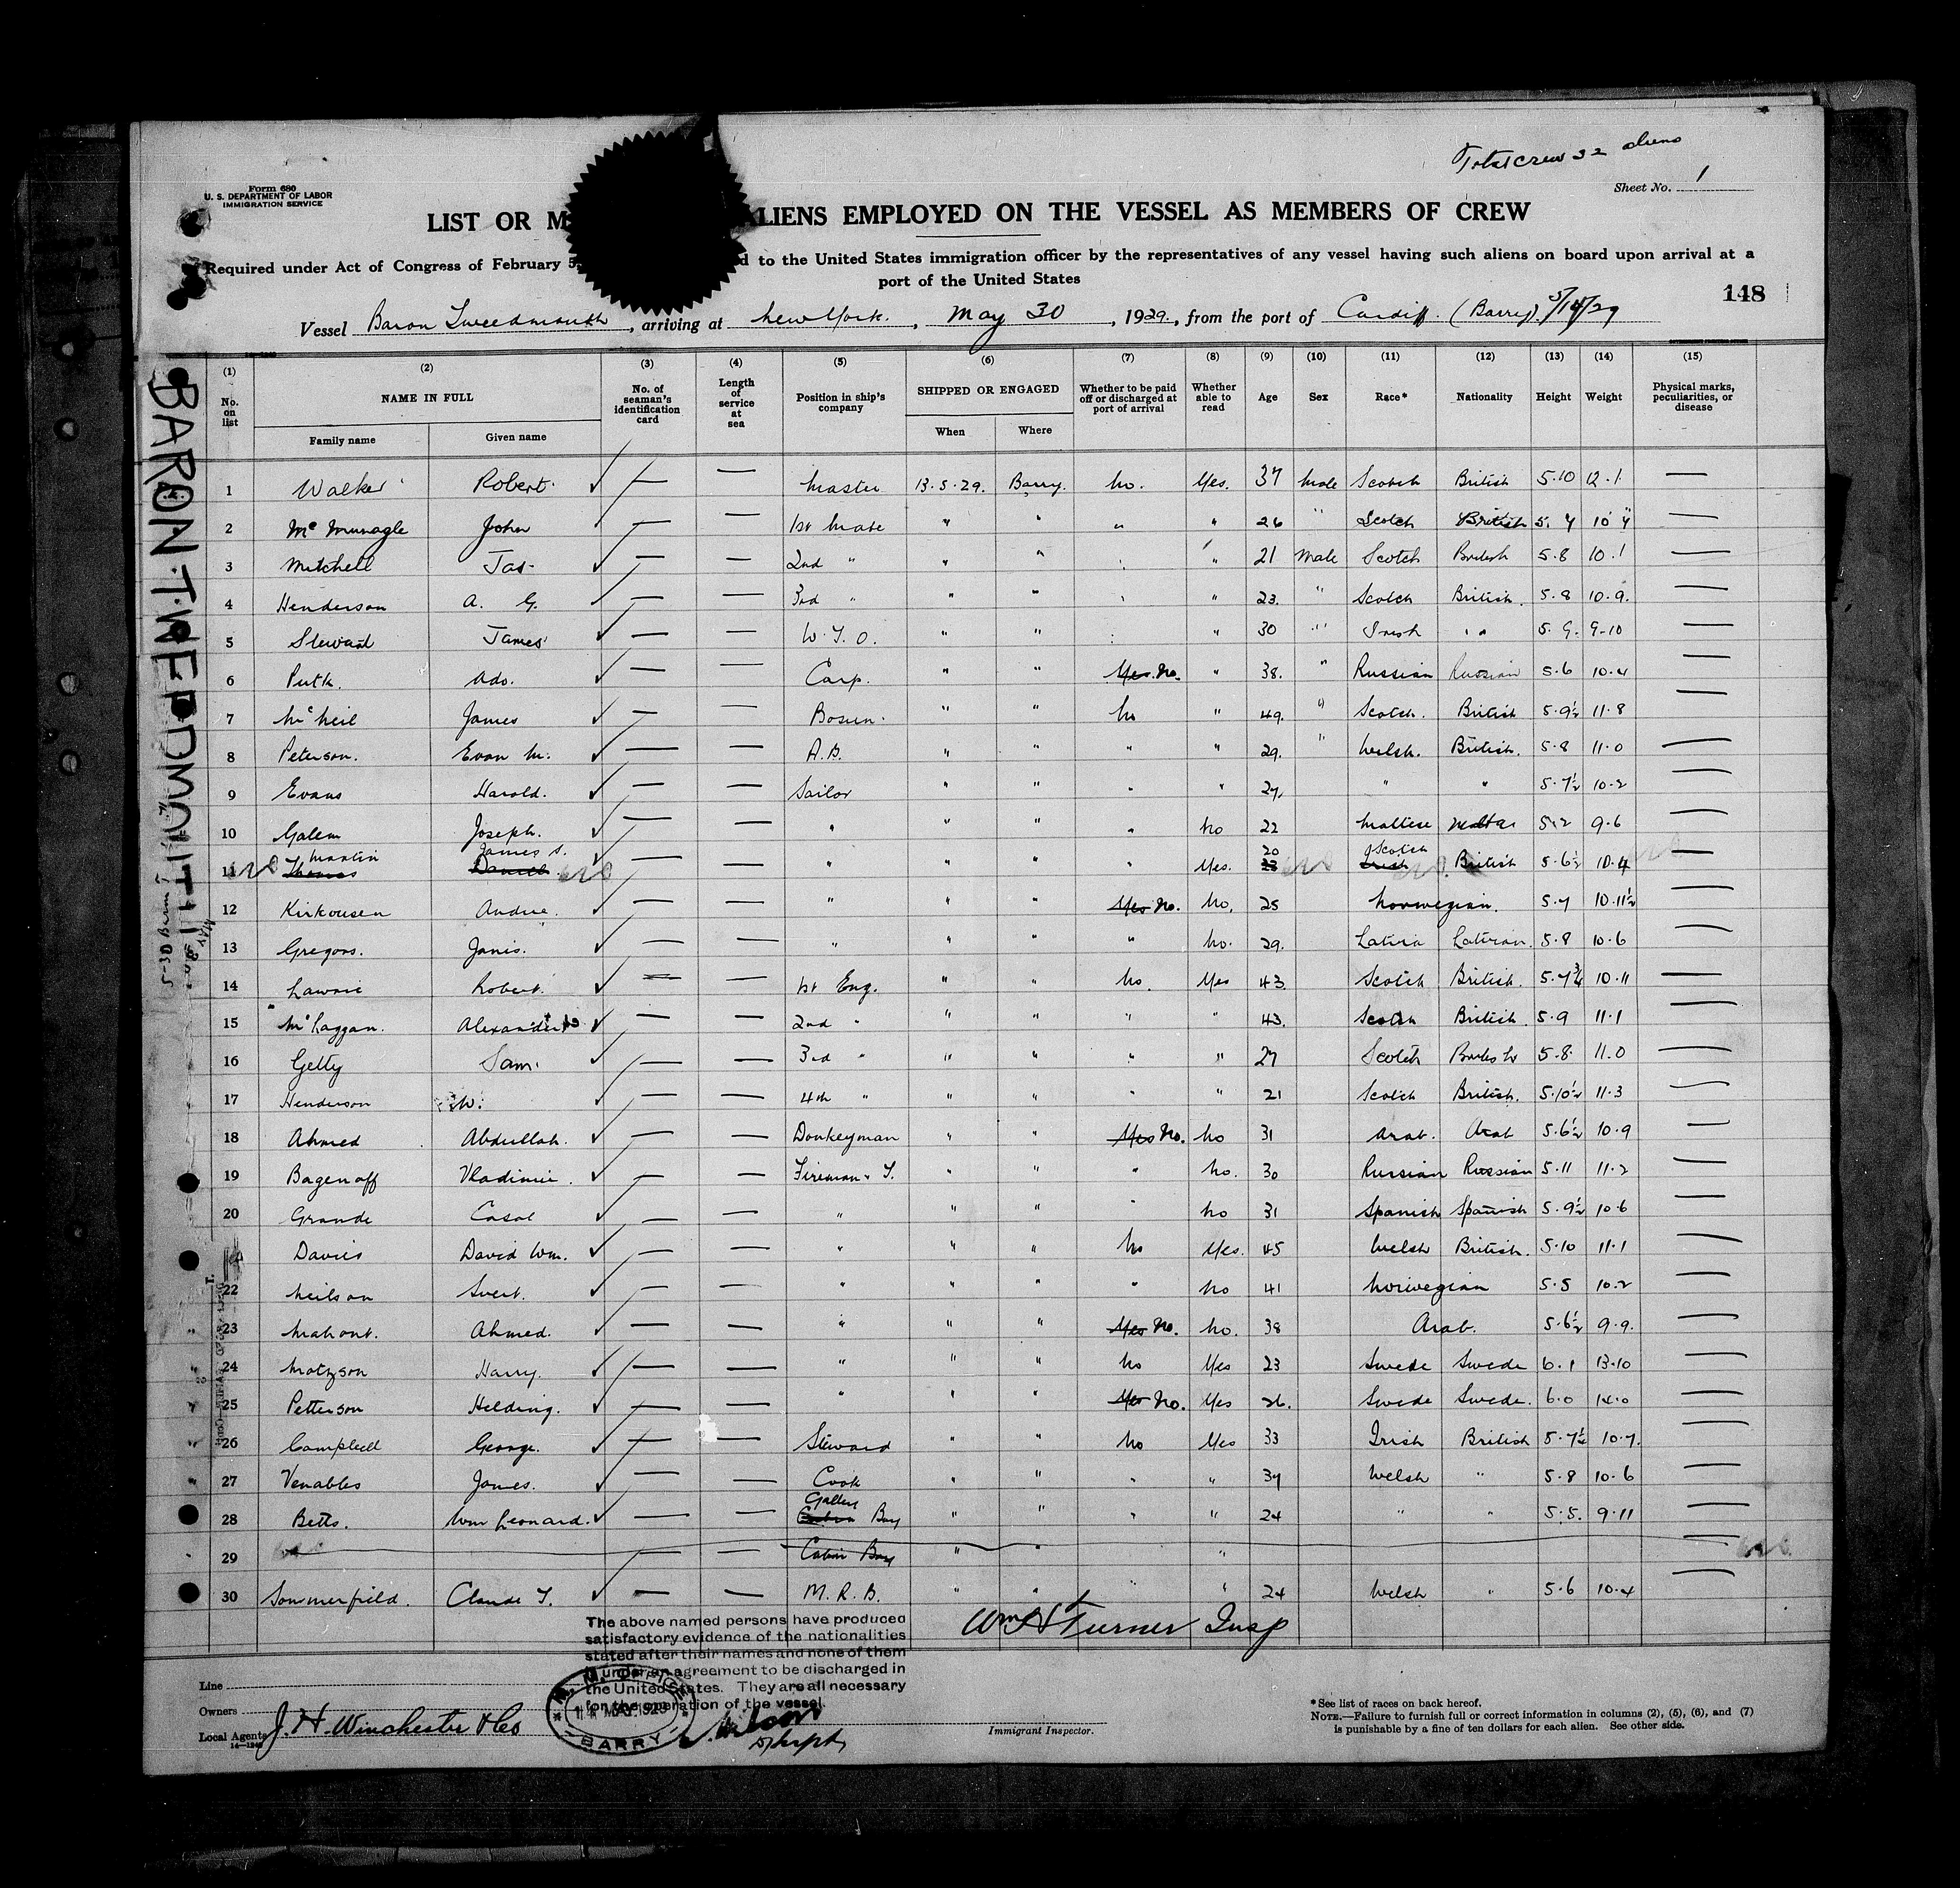 Total crew 32 aliens
Form 680
U. S. DEPARTMENT OF LABOR
IMMIGRATION SERVICE
Sheet No. 1
LIST OR M ALIENS EMPLOYED ON THE VESSEL AS MEMBERS OF CREW
Required under Act of Congress of February 5 d to the United States immigration officer by the representatives of any vessel having such aliens on board upon arrival at a
port of the United States
148
Vessel Baron Tweedmouth, arriving at New York., May 30, 1929., from the port of Cardiff. (Barry) 5/14/29
BARON TWEEDMOUTH
(1) (2) (3) (4) (5) (6) (7) (8) (9) (10) (11) (12) (13) (14) (15)
No. on list NAME IN FULL Family name Given name No. of seaman's identification card Length of service at sea Position in ship's company SHIPPED OR ENGAGED When Where Whether to be paid off or discharged at port of arrival Whether able to read Age Sex Race* Nationality Height Weight Physical marks, peculiarities, or disease
1 Walker Robert. ✓ — — Master 13.5.29. Barry. No. Yes. 37 Male Scotch British 5.10 12.1 —
2 Mc Munagle John — — 1st Mate " " " " 26 " Scotch British 5.7 10.7 —
3 Mitchell Jas. ✓ — — 2nd " " " " " 21 Male Scotch British 5.8 10.1 —
4 Henderson A. G. ✓ — — 3rd " " " " " 23. " Scotch British. 5.8 10.9. —
5 Steward James ✓ — — W.T.O. " " " " 30 " Irish " 5.9. 9-10 —
6 Putk. Ado. ✓ — — Carp. " " Yes. No. " 38. " Russian Russian 5.6 10.4 —
7 McNeil James ✓ — — Bosun. " " No " 49. " Scotch. British 5.9½ 11.8 —
8 Peterson. Evan M. ✓ — — A.B. " " " " 29. " Welsh. British. 5.8 11.0 —
9 Evans Harold. ✓ — — Sailor " " " " 27. " " 5.7½ 10.2 —
10 Galem Joseph. ✓ — — " " " " No 22 Maltese Malta 5.2 9.6 —
Martin James S. 20 Scotch
11 Thomas Daniel. ✓ — — " " " " Yes. 23 Irish British 5.6½ 10.4 —
12 Kirkousen Andre. ✓ — — " " " Yes No. No. 25 Norwegian. 5.7 10.11½ —
13 Gregors. Janis. ✓ — — " " " " No. 29. Latvia Latvian. 5.8 10.6 —
14 Lawrie Robert. ✓ — — 1st Eng. " " No. Yes 43. Scotch British. 5.7¾ 10.11 —
15 McLaggan. Alexander ✓ — — 2nd " " " " " 43. Scotch British. 5.9 11.1 —
16 Getty Sam. ✓ — — 3rd " " " " " 27 Scotch British 5.8. 11.0 —
17 Henderson W. ✓ — — 4th " " " " " 21 Scotch British. 5.10½ 11.3 —
18 Ahmed Abdullah. ✓ — — Donkeyman " " Yes No. No 31 Arab. Arab 5.6½ 10.9 —
19 Bagenoff Vladimir. ✓ — — Fireman & T. " " " No. 30 Russian Russian 5.11 11.2 —
20 Grande Casal ✓ — — " " " " No 31 Spanish Spanish 5.9½ 10.6 —
Davies David Wm. ✓ — — " " " No Yes. 45 Welsh British. 5.10 11.1 —
22 Neilson Svert. ✓ — — " " " " No 41 Norwegian 5.5 10.2 —
23 Mahout. Ahmed. ✓ — — " " " Yes No. No. 38 Arab. 5.6½ 9.9. —
24 Matzson Harry. ✓ — — " " " No Yes 23 Swede Swede 6.1 13.10 —
25 Petterson Helding. ✓ — — " " " Yes No. Yes 26. Swede Swede. 6.0 14.0 —
26 Campbell George. ✓ — — Steward " " No Yes 33 Irish British 5.7½ 10.7. —
27 Venables James. ✓ — — Cook " " " " 37 Welsh " 5.8 10.6 —
Galley
28 Betts. Wm Leonard. ✓ — — Cabin Boy " " " " 24 " " 5.5. 9.11 —
29 — — Cabin Boy " " " —
30 Sommerfield. Claude T. ✓ — — M.R.B. " " " " 24 Welsh " 5.6 10.4 —
Wm H Turner Insp
The above named persons have produced
satisfactory evidence of the nationalities
stated after their names and none of them
is under an agreement to be discharged in
the United States. They are all necessary
for the operation of the vessel.
M. M. OFFICE
14 MAY 1929
BARRY
Line
Owners
Local Agents J. H. Winchester & Co
14—1240
Immigrant Inspector.
*See list of races on back hereof.
NOTE.—Failure to furnish full or correct information in columns (2), (5), (6), and (7)
is punishable by a fine of ten dollars for each alien. See other side.